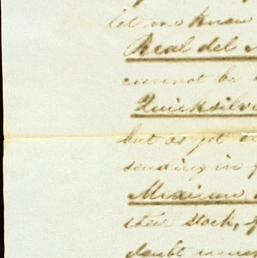 let me know
Real del
cannot be
Quicksilver
but as yet
sending in
Mexican
their stock,
doubt